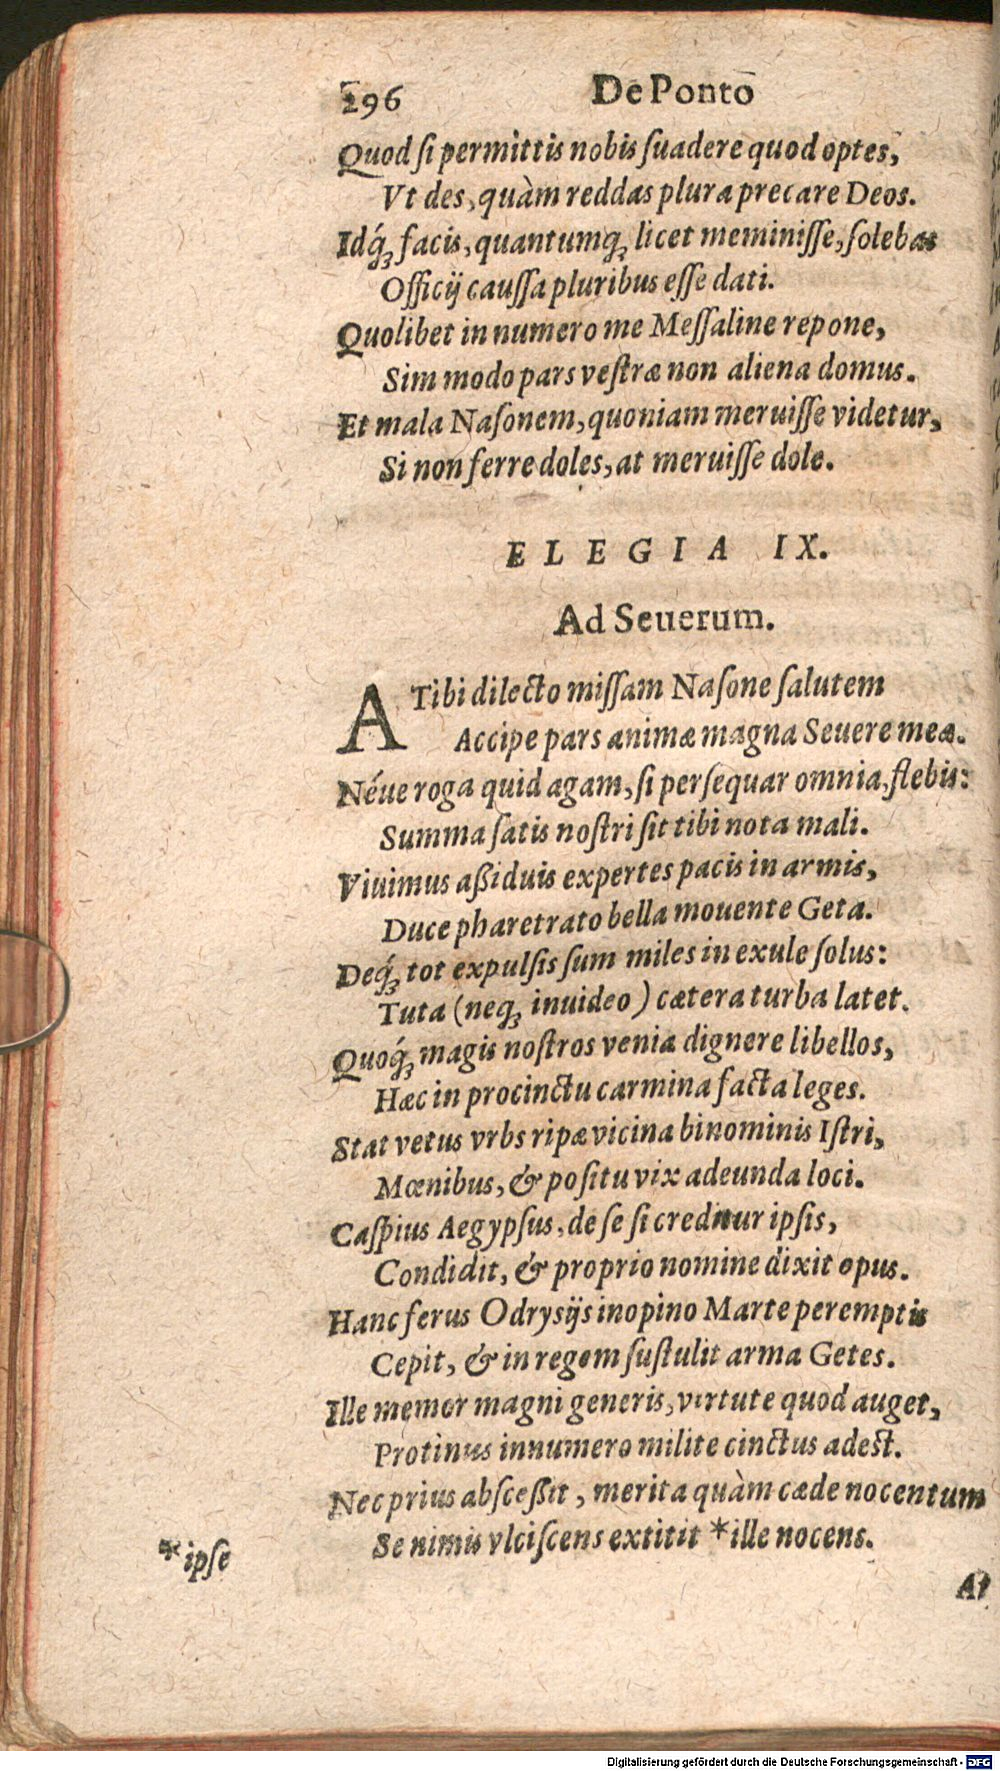 296 De Ponto
Quod ſi permittis nobis ſuadere quod optes,
Vt des, quàm reddas plura precare Deos.
Idq́ꝫ facis, quantumqꝫ licet meminiſſe, ſolebas
Officij cauſſa pluribus eſſe dati.
Quolibet in numero me Meſſaline repone,
Sim modo pars veſtræ non aliena domus.
Et mala Naſonem, quoniam meruiſſe videtur,
Si non ferre doles, at meruiſſe dole.
ELEGIA IX.
Ad Seuerum.
A Tibi dilecto miſſam Naſone ſalutem
Accipe pars animæ magna Seuere meæ.
Néue roga quid agam, ſi perſequar omnia, flebis:
Summa ſatis noſtri ſit tibi nota mali.
Viuimus aßiduis expertes pacis in armis,
Duce pharetrato bella mouente Geta.
Deq́ꝫ tot expulſis ſum miles in exule ſolus:
Tuta (neqꝫ inuideo) cætera turba latet.
Quoq́ꝫ magis noſtros venia dignere libellos,
Hæc in procinctu carmina facta leges.
Stat vetus vrbs ripæ vicina binominis Iſtri,
Mœnibus, & poſitu vix adeunda loci.
Caſpius Aegypſus, de ſe ſi creditur ipſis,
Condidit, & proprio nomine dixit opus.
Hanc ferus Odryſijs inopino Marte peremptis
Cepit, & in regem ſuſtulit arma Getes.
Ille memor magni generis, virtute quod auget,
Protinus innumero milite cinctus adeſt.
Nec prius abſceßit, merita quàm cæde nocentum
Se nimis vlciſcens extitit *ille nocens.
*ipſe
At
Digitalisierung gefördert durch die Deutsche Forschungsgemeinschaft - DFG